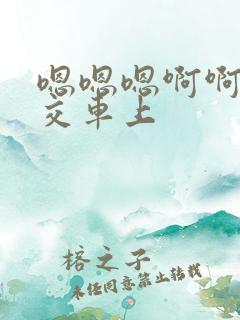 嗯嗯嗯啊啊
交车上
榕之子
未经同意禁止转载